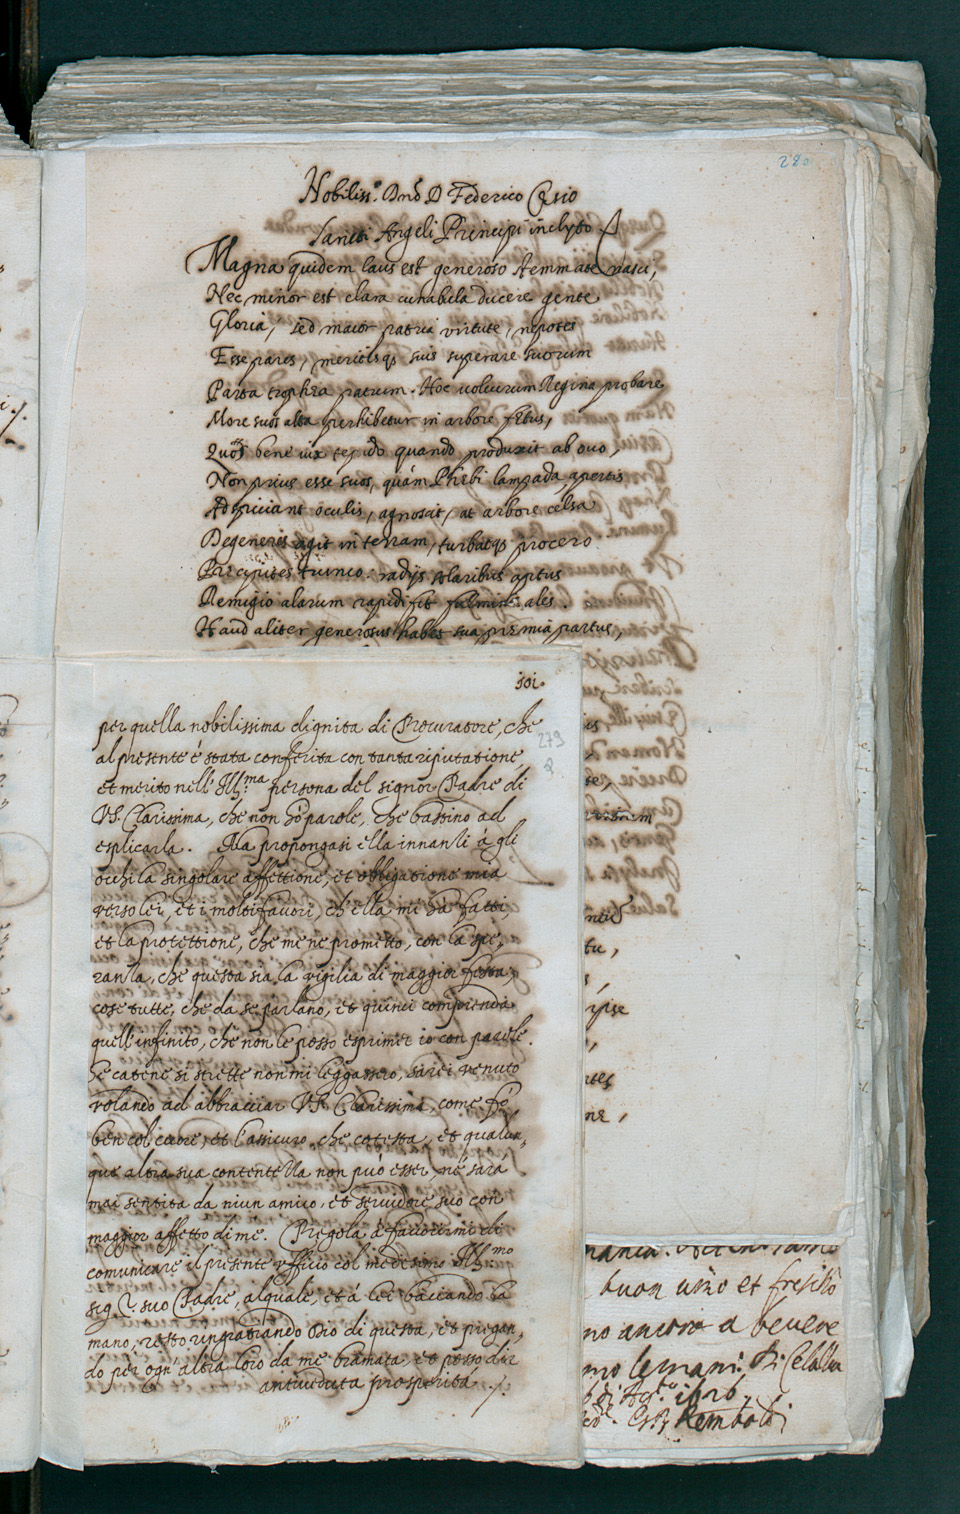 280
Nobiliss.º Dnō D Federico Cęsio
Sancti Angeli Principi inclyto
Magna quidem laus est generoso stemmate nasci,
Nec minor est clara cunabula ducere gente
Gloria, sed maior patria virtute, nepotes
Esse pares, meritisq; suis superare suorum
Parta trophęa patrum. Hoc uolucrum Regina probare
More suos alta perhibetur in arbore fętus,
Quos bene uix tepido quando produxit ab ouo,
Non prius esse suos, quàm Phębi lampada apertis
Adspiciant oculis, agnoscit, at arbore celsa
Degeneres agit in terram, turbatq; procero
Pręcipites trunco: radijs solaribus aptus
Remigio alarum rapidi fit fulminis ales.
Haud aliter generosus habet sua pręmia partus,
101.
279
2
per quella nobilissima dignità di Procuratore, che
al presente è stata conferita con tanta riputatione,
et merito nell' Ill.ma persona del signor Padre di
V.S. Clarissima, che non hò parole, che bastino ad
esplicarla. Ma propongasi ella innanti à gli
occhi la singolare affettione, et obligatione mia
verso lei, et i molti fauori, ch'ella mi hà fatti
et la protettione, che me ne prometto, con la spe,
ranza, che questa sia la vigilia di maggior festa,
cose tutte, che da se parlano, et quinci comprenda
quell'infinito, che non le posso esprimer io con parole.
Se catene si strette non mi leggassero, sarei venuto
volando ad abbracciar V.S. Clarissima, come fò
ben col cuore, et l'assicuro, che cotesta, et qualun,
que altra sua contentezza non può esser, nè sarà
mai sentita da niun amico, et seruidore suo con
maggior affetto di me. Pregola à fauorirmi di
comunicare il presente vfficio col medesimo Ill.mo
sig.r suo Padre, al quale, et à lei bacciando la
mano, resto ringratiando Dio di questa, et pregan,
do per ogn' altra loro da me bramata, et posso dir
antiueduta prosperità.
ntie
tu,
ipse
ne,
buon uino et fresiho
no ancora a beuere
mo le mani. Di Celalba